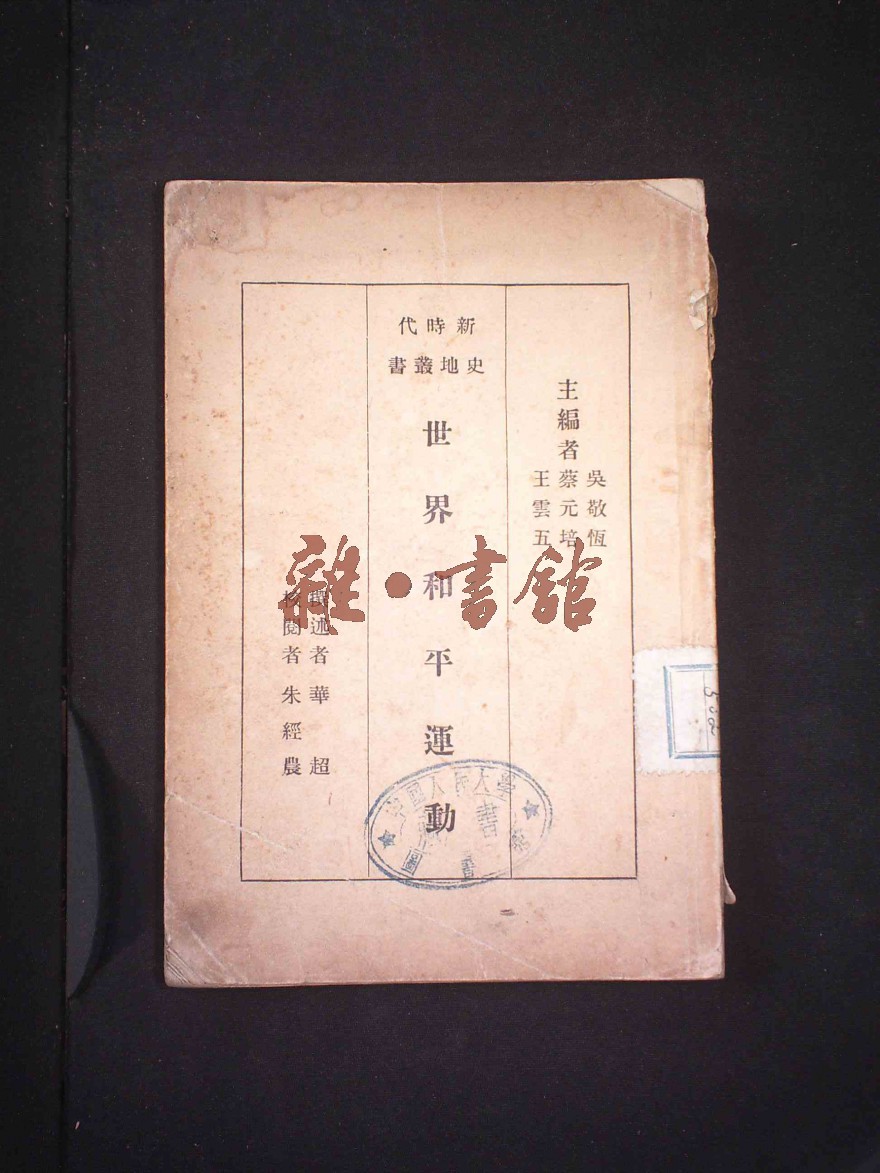 主編者
吳敬恆
蔡元培
王雲五
新時代
史地叢書
世界和平運動
撰述者 華超
校閱者 朱經農
雜·書館
中國人民大學
圖書
502